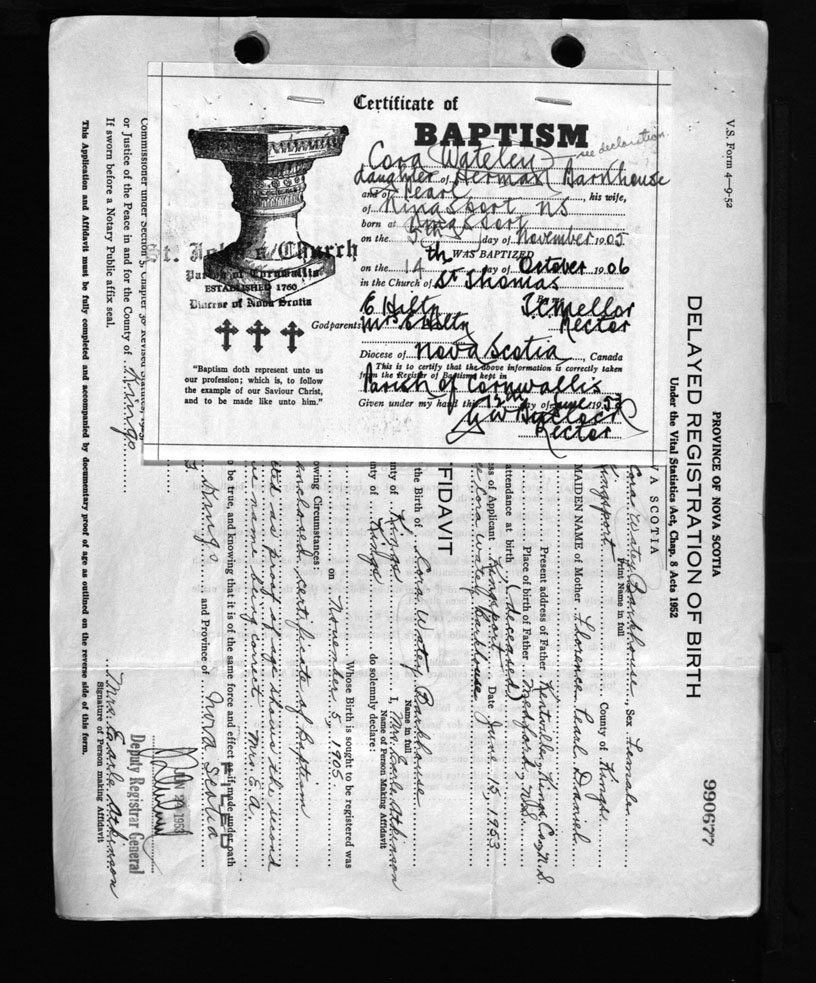 Certificate of
BAPTISM
see declaration
Cora (Wateley)
daughter of Herman Barnhouse
and of Pearl, his wife,
of Kingsport NS
born at Kingsport
on the 5th day of November 1905
WAS BAPTIZED
on the 14th day of October 1906
in the Church of St Thomas
E Hilty
Mellor
Godparents Mrs E Hilty
Rector
Diocese of Nova Scotia, Canada
This is to certify that the above information is correctly taken
from the Register of Baptisms kept in
Parish of Cornwallis
Given under my hand this 12th day of June 1953
Rector
St. John's Church
Parish of Cornwallis
ESTABLISHED 1760
Diocese of Nova Scotia
"Baptism doth represent unto us
our profession; which is, to follow
the example of our Saviour Christ,
and to be made like unto him."
V.S. Form 4-9-52
990677
PROVINCE OF NOVA SCOTIA
DELAYED REGISTRATION OF BIRTH
Under the Vital Statistics Act, Chap. 8 Acts 1952
VA SCOTIA
Cora Watey Barkhouse, Sex Female
Print Name in full
Kingsport County of Kings
MAIDEN NAME of Mother Florence Pearl Daniels
Present address of Father Kentville, Kings Co., N.S.
Place of birth of Father Medford, N.S.
attendance at birth (deceased)
ss of Applicant Kingsport Date June 15, 1953
Cora Watey Barkhouse
FIDAVIT
the Birth of Cora Watey Barkhouse
Name in full
nty of Kings I, Mrs. Earle Atkinson
Name of Person Making Affidavit
nty of Kings do solemnly declare:
Whose Birth is sought to be registered was
on November 5, 1905.
owing Circumstances:
enclosed certificate of Baptism
as proof of age shows the second
name being correct. Mrs. E. A.
o be true, and knowing that it is of the same force and effect as if made under oath
Kings and Province of Nova Scotia
FILED
JUN 1953
Deputy Registrar General
Mrs. Earle Atkinson
Signature of Person making Affidavit
Commissioner under Section 5, Chapter 38 Revised Statutes,
or Justice of the Peace in and for the County of Kings
If sworn before a Notary Public affix seal.
This Application and Affidavit must be fully completed and accompanied by documentary proof of age as outlined on the reverse side of this form.